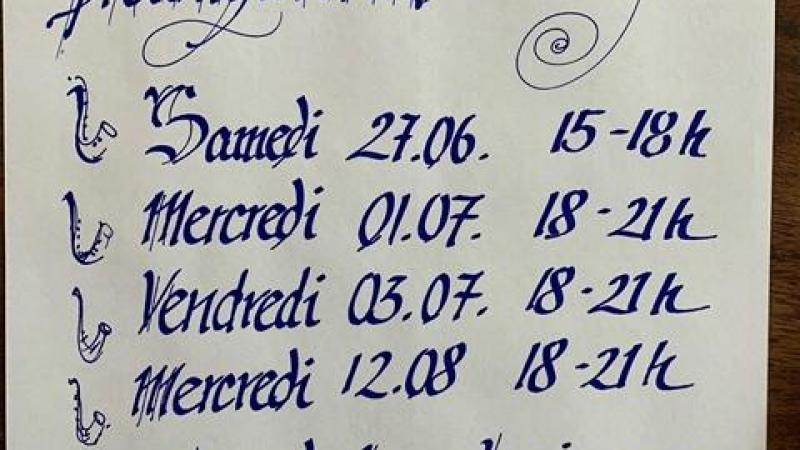 Samedi 27.06. 15-18h
Mercredi 01.07. 18-21h
Vendredi 03.07. 18-21h
Mercredi 12.08 18-21h